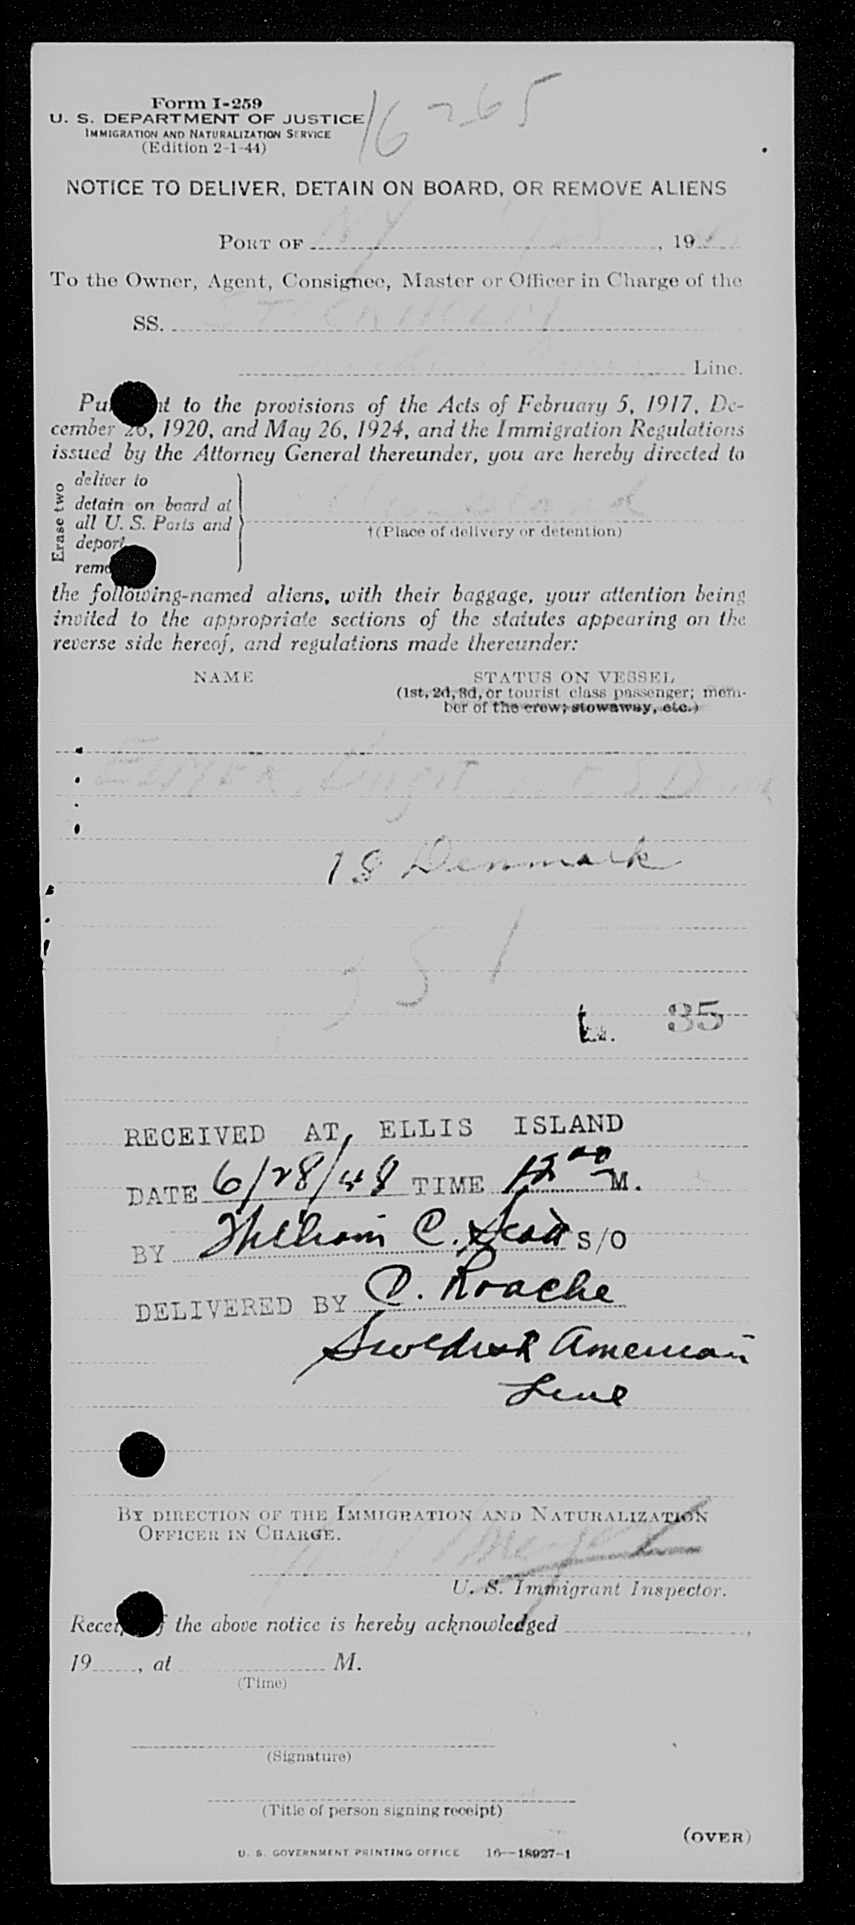 Form I-259
U. S. DEPARTMENT OF JUSTICE
IMMIGRATION AND NATURALIZATION SERVICE
(Edition 2-1-44)
16265
NOTICE TO DELIVER, DETAIN ON BOARD, OR REMOVE ALIENS
PORT OF NY, 19
To the Owner, Agent, Consignee, Master or Officer in Charge of the
SS.
Line.
to the provisions of the Acts of February 5, 1917, De-
cember 26, 1920, and May 26, 1924, and the Immigration Regulations
issued by the Attorney General thereunder, you are hereby directed to
Erase two
deliver to
detain on board at
all U. S. Ports and
deport
†(Place of delivery or detention)
the following-named aliens, with their baggage, your attention being
invited to the appropriate sections of the statutes appearing on the
reverse side hereof, and regulations made thereunder:
NAME STATUS ON VESSEL
(1st, 2d, 3d, or tourist class passenger; mem-
ber of the crew; stowaway, etc.)
18 Denmark
35
RECEIVED AT ELLIS ISLAND
DATE 6/28/48 TIME 12 00 M.
BY William C. Scott S/O
DELIVERED BY D. Roache
Swedish American
Line
BY DIRECTION OF THE IMMIGRATION AND NATURALIZATION
OFFICER IN CHARGE.
U. S. Immigrant Inspector.
the above notice is hereby acknowledged ,
19 , at M.
(Time)
(Signature)
(Title of person signing receipt)
(OVER)
U. S. GOVERNMENT PRINTING OFFICE 16—18927-1